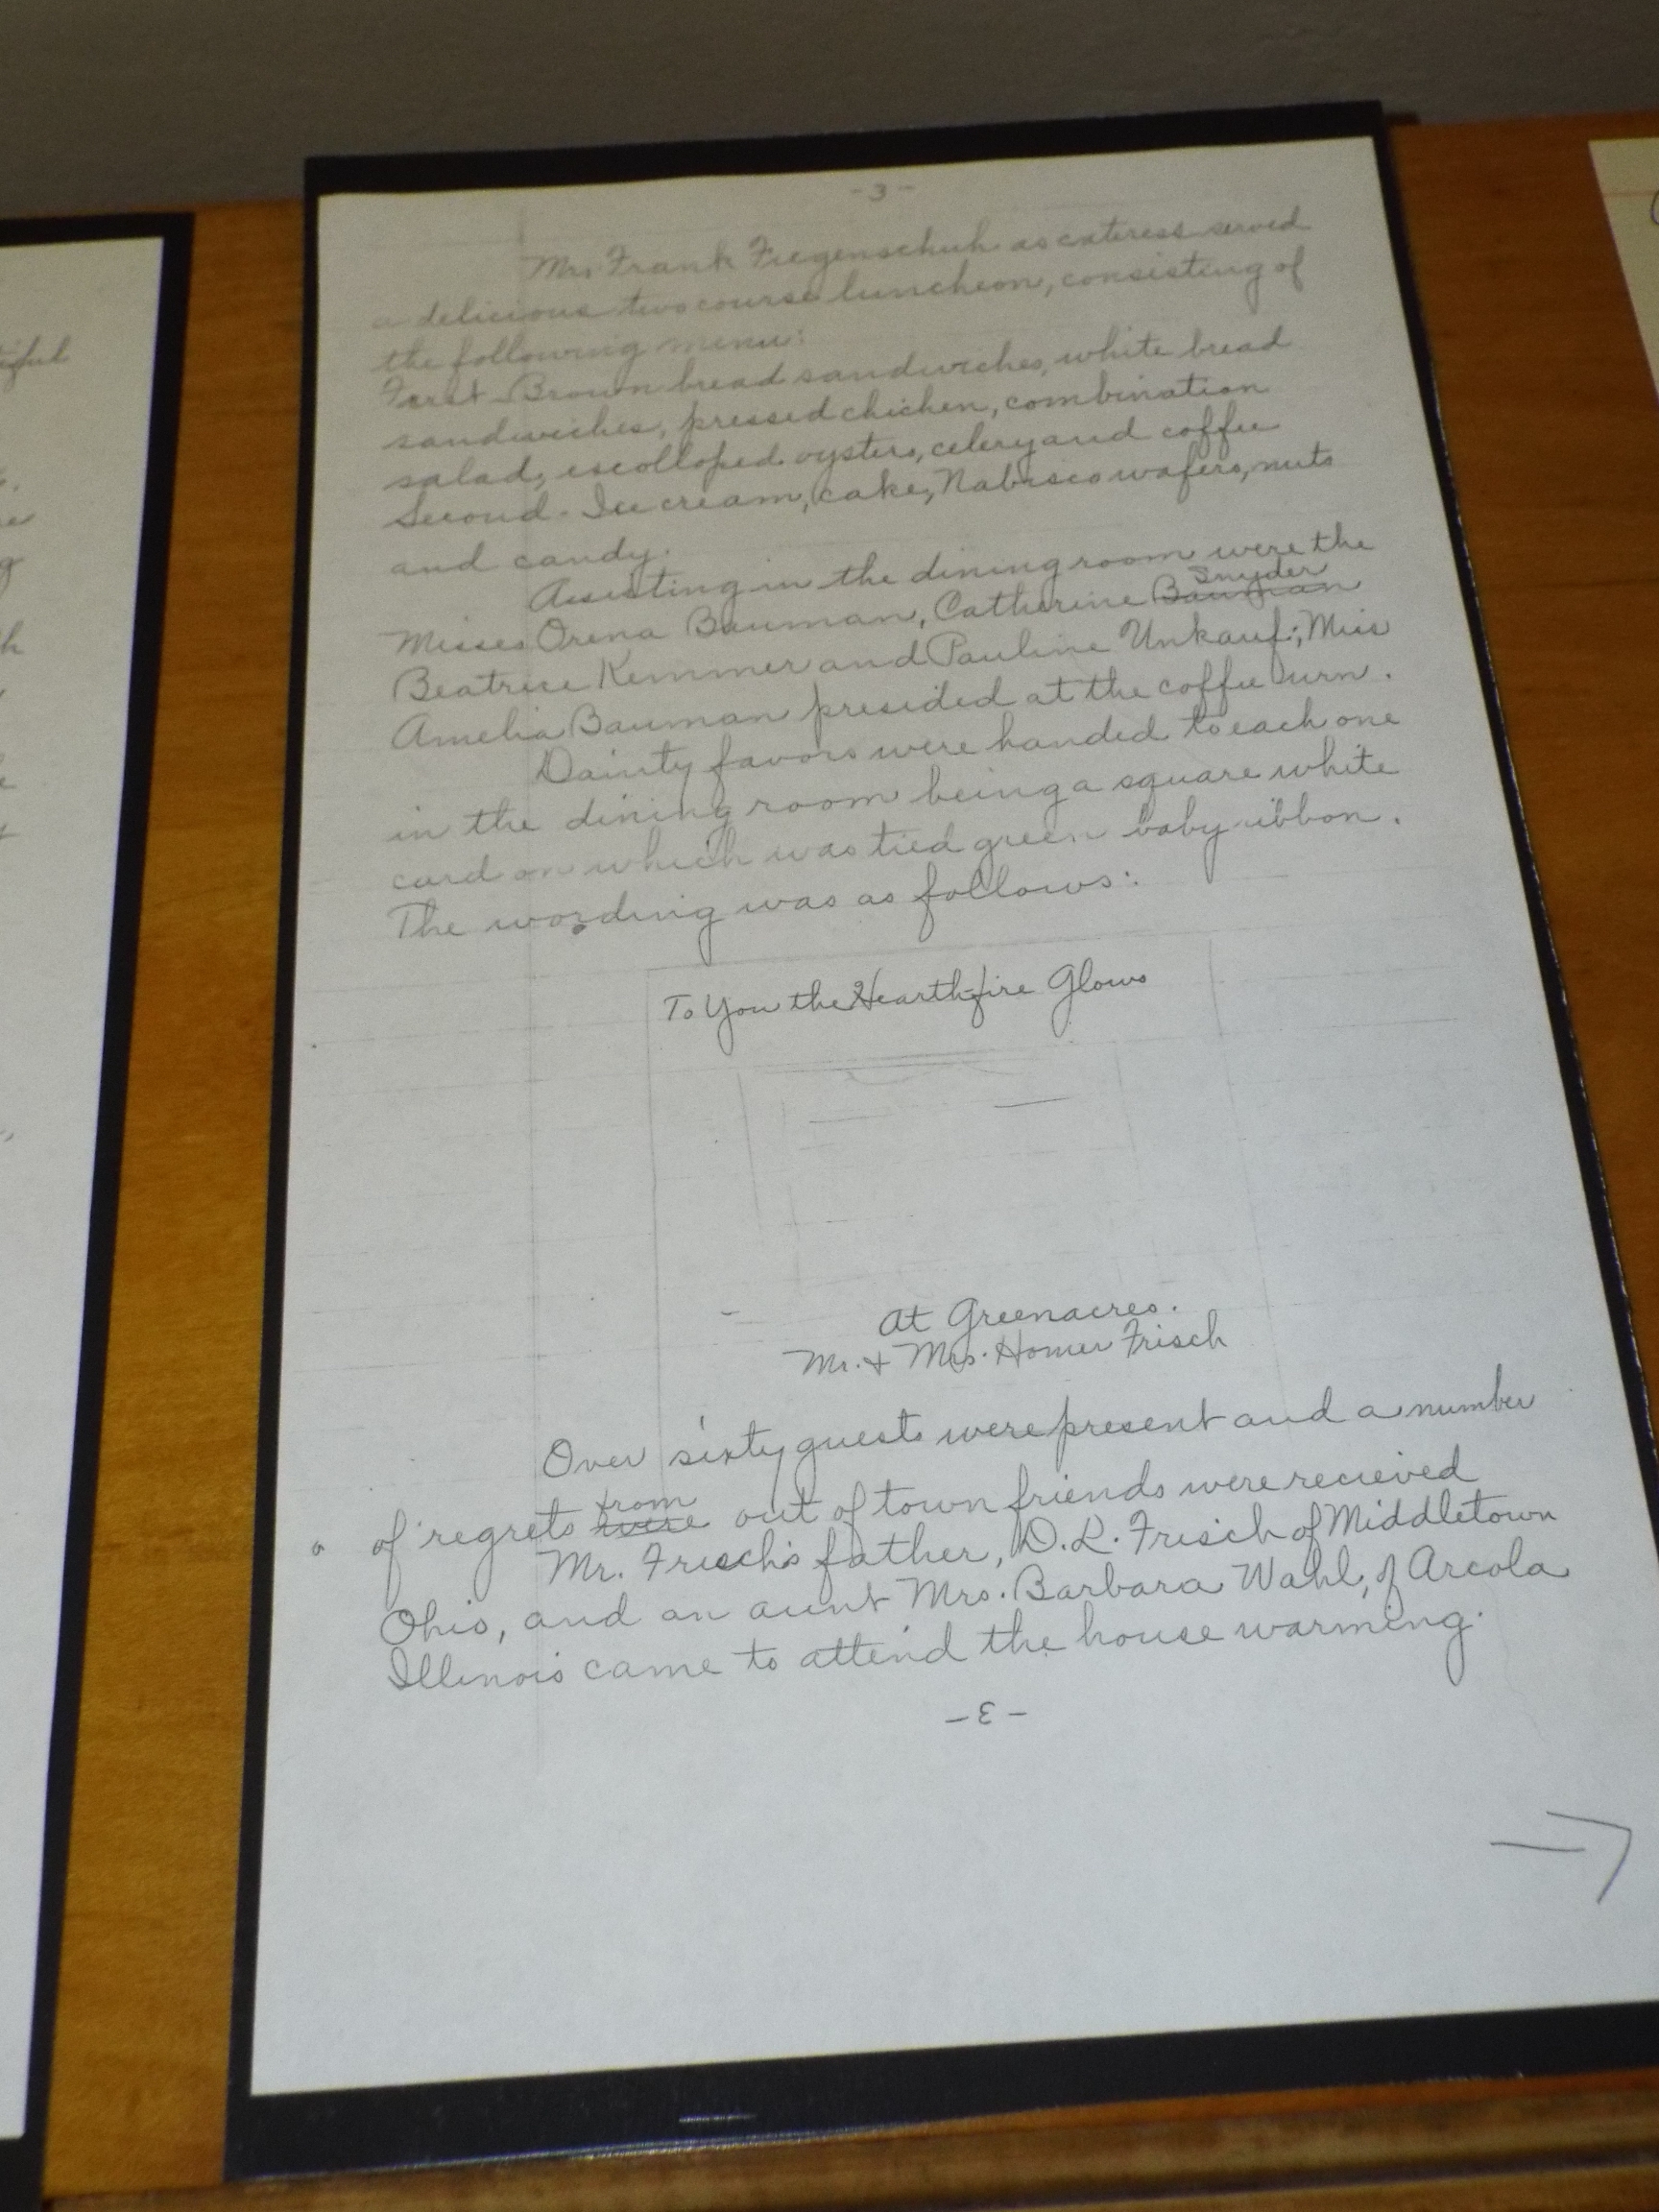 -3-
Mrs Frank Fiegenschuh as cateress served
a delicious two course luncheon, consisting of
the following menu:
First - Brown bread sandwiches, white bread
sandwiches, pressed chicken, combination
salad, escolloped oysters, celery and coffee
Second - Ice cream, cake, Nabisco wafers, nuts
and candy.
Assisting in the dining room were the
Snyder
Misses Orena Bauman, Catherine Bauman
Beatrice Kemmer and Pauline Unkauf; Miss
Amelia Bauman presided at the coffee urn.
Dainty favors were handed to each one
in the dining room being a square white
card on which was tied green baby ribbon.
The wording was as follows:
To You the Hearth-fire Glows
At Greenacres.
Mr. & Mrs. Homer Frisch
Over sixty guests were present and a number
from
of regrets were out of town friends were recieved
Mr. Frisch's father, D. L. Frisch of Middletown
Ohio, and an aunt Mrs. Barbara Wahl, of Arcola
Illinois came to attend the house warming.
-E-